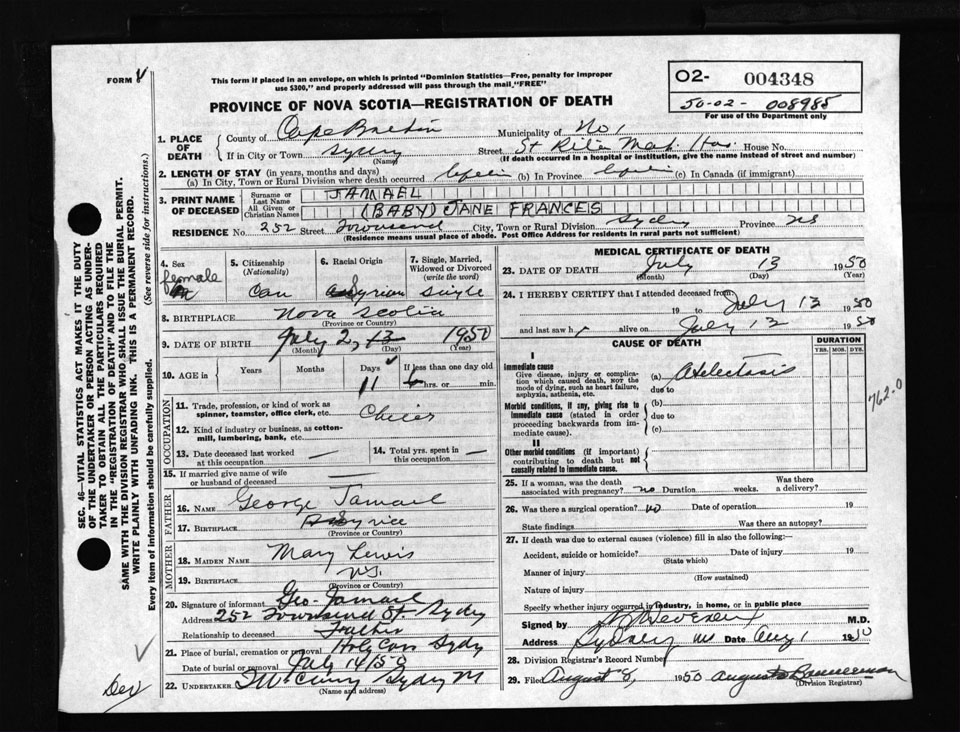 FORM V
This form if placed in an envelope, on which is printed "Dominion Statistics—Free, penalty for improper
use $300," and properly addressed will pass through the mail "FREE"
O2- 004348
50-02- 008985
For use of the Department only
PROVINCE OF NOVA SCOTIA—REGISTRATION OF DEATH
1. PLACE OF DEATH
County of Cape Breton Municipality of No 1
If in City or Town Sydney Street St Rita Mat. Hos. House No.
(Name) (If death occurred in a hospital or institution, give the name instead of street and number)
2. LENGTH OF STAY (in years, months and days)
(a) In City, Town or Rural Division where death occurred (b) In Province (c) In Canada (if immigrant)
3. PRINT NAME OF DECEASED
Surname or Last Name JAMAEL
All Given or Christian Names (BABY) JANE FRANCES
RESIDENCE No. 252 Street Townsend City, Town or Rural Division Sydney Province NS
(Residence means usual place of abode. Post Office Address for residents in rural parts not sufficient)
4. Sex female
5. Citizenship (Nationality) Can
6. Racial Origin Syrian
7. Single, Married, Widowed or Divorced (write the word) Single
8. BIRTHPLACE Nova Scotia
(Province or Country)
9. DATE OF BIRTH July 2, 13 1950
(Month) (Day) (Year)
10. AGE in Years Months Days If less than one day old
11 hrs. or min.
OCCUPATION
11. Trade, profession, or kind of work as spinner, teamster, office clerk, etc.
12. Kind of industry or business, as cotton-mill, lumbering, bank, etc.
13. Date deceased last worked at this occupation —
14. Total yrs. spent in this occupation —
15. If married give name of wife or husband of deceased —
FATHER
16. NAME George Jamael
17. BIRTHPLACE
(Province or Country)
MOTHER
18. MAIDEN NAME Mary Lewis
19. BIRTHPLACE N.S.
(Province or Country)
20. Signature of informant Geo. Jamael
Address 252 Townsend St. Sydney
Relationship to deceased Father
21. Place of burial, cremation or removal Holy Cross Sydney
Date of burial or removal July 14/50
22. UNDERTAKER Sydney
(Name and address)
MEDICAL CERTIFICATE OF DEATH
23. DATE OF DEATH July 13 1950
(Month) (Day) (Year)
24. I HEREBY CERTIFY that I attended deceased from
19 to July 13 1950
and last saw h alive on July 12 1950
CAUSE OF DEATH
DURATION
YRS. MOS. DYS.
I
Immediate cause
Give disease, injury or complication which caused death, NOT the mode of dying, such as heart failure, asphyxia, asthenia, etc.
(a) Atelectasis
due to
Morbid conditions, if any, giving rise to immediate cause (stated in order proceeding backwards from immediate cause).
(b)
due to
(c)
II
Other morbid conditions (if important) contributing to death but not causally related to immediate cause.
762-0
25. If a woman, was the death associated with pregnancy? no Duration weeks. Was there a delivery?
26. Was there a surgical operation? no Date of operation 19
State findings Was there an autopsy?
27. If death was due to external causes (violence) fill in also the following:
Accident, suicide or homicide? Date of injury 19
(State which)
Manner of injury
(How sustained)
Nature of injury
Specify whether injury occurred in industry, in home, or in public place
Signed by M.D.
Address Sydney NS Date Aug 1 1950
28. Division Registrar's Record Number
29. Filed August 8, 1950
(Division Registrar)
SEC. 46—VITAL STATISTICS ACT MAKES IT THE DUTY
OF THE UNDERTAKER OR PERSON ACTING AS UNDER-
TAKER TO OBTAIN ALL THE PARTICULARS REQUIRED
IN THE "REGISTRATION OF DEATH" AND TO FILE THE
SAME WITH THE DIVISION REGISTRAR WHO SHALL ISSUE THE BURIAL PERMIT.
WRITE PLAINLY WITH UNFADING INK. THIS IS A PERMANENT RECORD.
Every item of information should be carefully supplied. (See reverse side for instructions.)